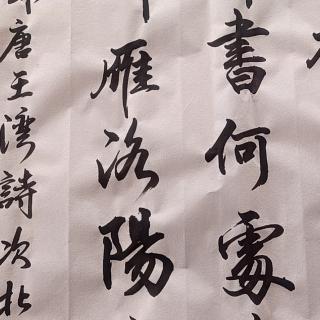 書何處
雁洛陽
唐王湾詩次北